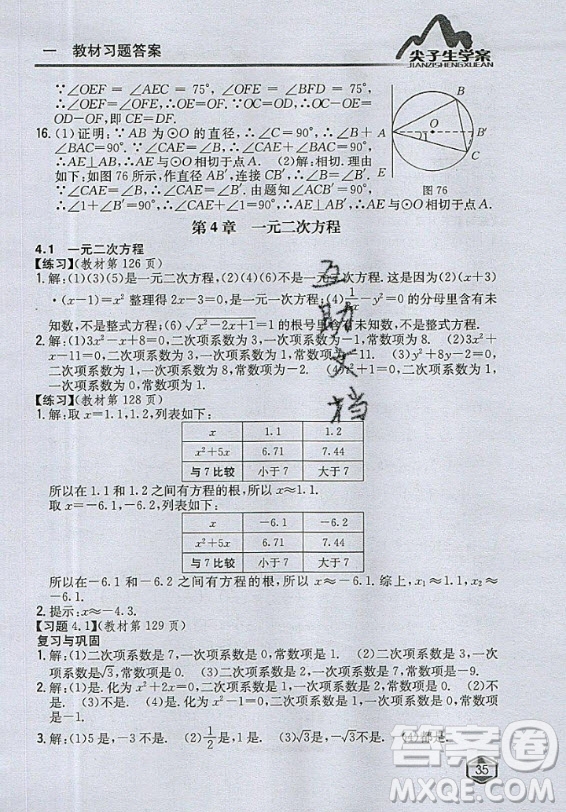 一 教材习题答案
尖子生学案
JIANZISHENGXUEAN
∵∠OEF = ∠AEC = 75°, ∠OFE = ∠BFD = 75°,
∴∠OEF=∠OFE, ∴OE=OF. ∵OC=OD, ∴OC-OE=
OD-OF, 即 CE=DF.
16. (1)证明: ∵AB 为⊙O 的直径, ∴∠C=90°, ∴∠B+
∠BAC=90°. ∵∠CAE=∠B, ∴∠CAE+∠BAC=90°,
∴AE⊥AB, ∴AE 与⊙O 相切于点 A. (2)解: 相切. 理由
如下: 如图 76 所示, 作直径 AB′, 连接 CB′, ∵∠B=∠B′,
∴∠CAE=∠B′. 由题知∠CAE=∠B, ∴∠ACB′=90°,
∴∠1+∠B′=90°, ∴∠1+∠CAE=90°, ∴AE 与⊙O 相切.
B
A
O
B′
1
C
E
图 76
第 4 章 一元二次方程
4.1 一元二次方程
【练习】(教材第 126 页)
1. 解: (1)(3)(5)是一元二次方程, (2)(4)(6)不是一元二次方程. 这是因为(2)(x+3)
·(x-1)=x² 整理得 2x-3=0, 是一元一次方程; (4) 1/2x - y² =0 的分母里含有未
知数, 不是整式方程; (6)√x²-2x+1=1 的根号里含有未知数, 不是整式方程.
2. 解: (1)3x²-x+8=0, 二次项系数为 3, 一次项系数为-1, 常数项为 8. (2)3x²+
x-11=0, 二次项系数为 3, 一次项系数为 1, 常数项为-11. (3)y²+8y-2=0, 二
次项系数为 1, 一次项系数为 8, 常数项为-2. (4)6x²-x=0, 二次项系数为 6, 一次
项系数为-1, 常数项为 0.
【练习】(教材第 128 页)
1. 解: 取 x=1.1, 1.2, 列表如下:
x 1.1 1.2
x²+5x 6.71 7.44
与 7 比较 小于 7 大于 7
所以在 1.1 和 1.2 之间有方程的根, 所以 x≈1.1.
取 x=-6.1, -6.2, 列表如下:
x -6.1 -6.2
x²+5x 6.71 7.44
与 7 比较 小于 7 大于 7
所以在-6.1 和-6.2 之间有方程的根. 所以 x≈-6.1. 综上, x≈1.1 或 x≈
-6.1.
2. 提示: x≈-4.3.
【习题 4.1】(教材第 129 页)
复习与巩固
1. 解: (1)二次项系数是 7, 一次项系数是 0, 常数项是 0. (2)二次项系数是 1, 一次
项系数是√3, 常数项是 0. (3)二次项系数是 1, 一次项系数是 1, 常数项是-9.
2. 解: (1)是. 化为 x²+2x=0, 二次项系数是 1, 一次项系数是 2, 常数项是 0. (2)不
是. (3)不是. (4)是. 化为 x²+x-7=0, 二次项系数是 1, 一次项系数是 1, 常数
项是-7.
3. 解: (1)5 是, -1 不是. (2) 1/2 是, 1 不是. (3)√3是, -√3不是. (4)都是.
35
互助文档
答案圈
MXQE.COM